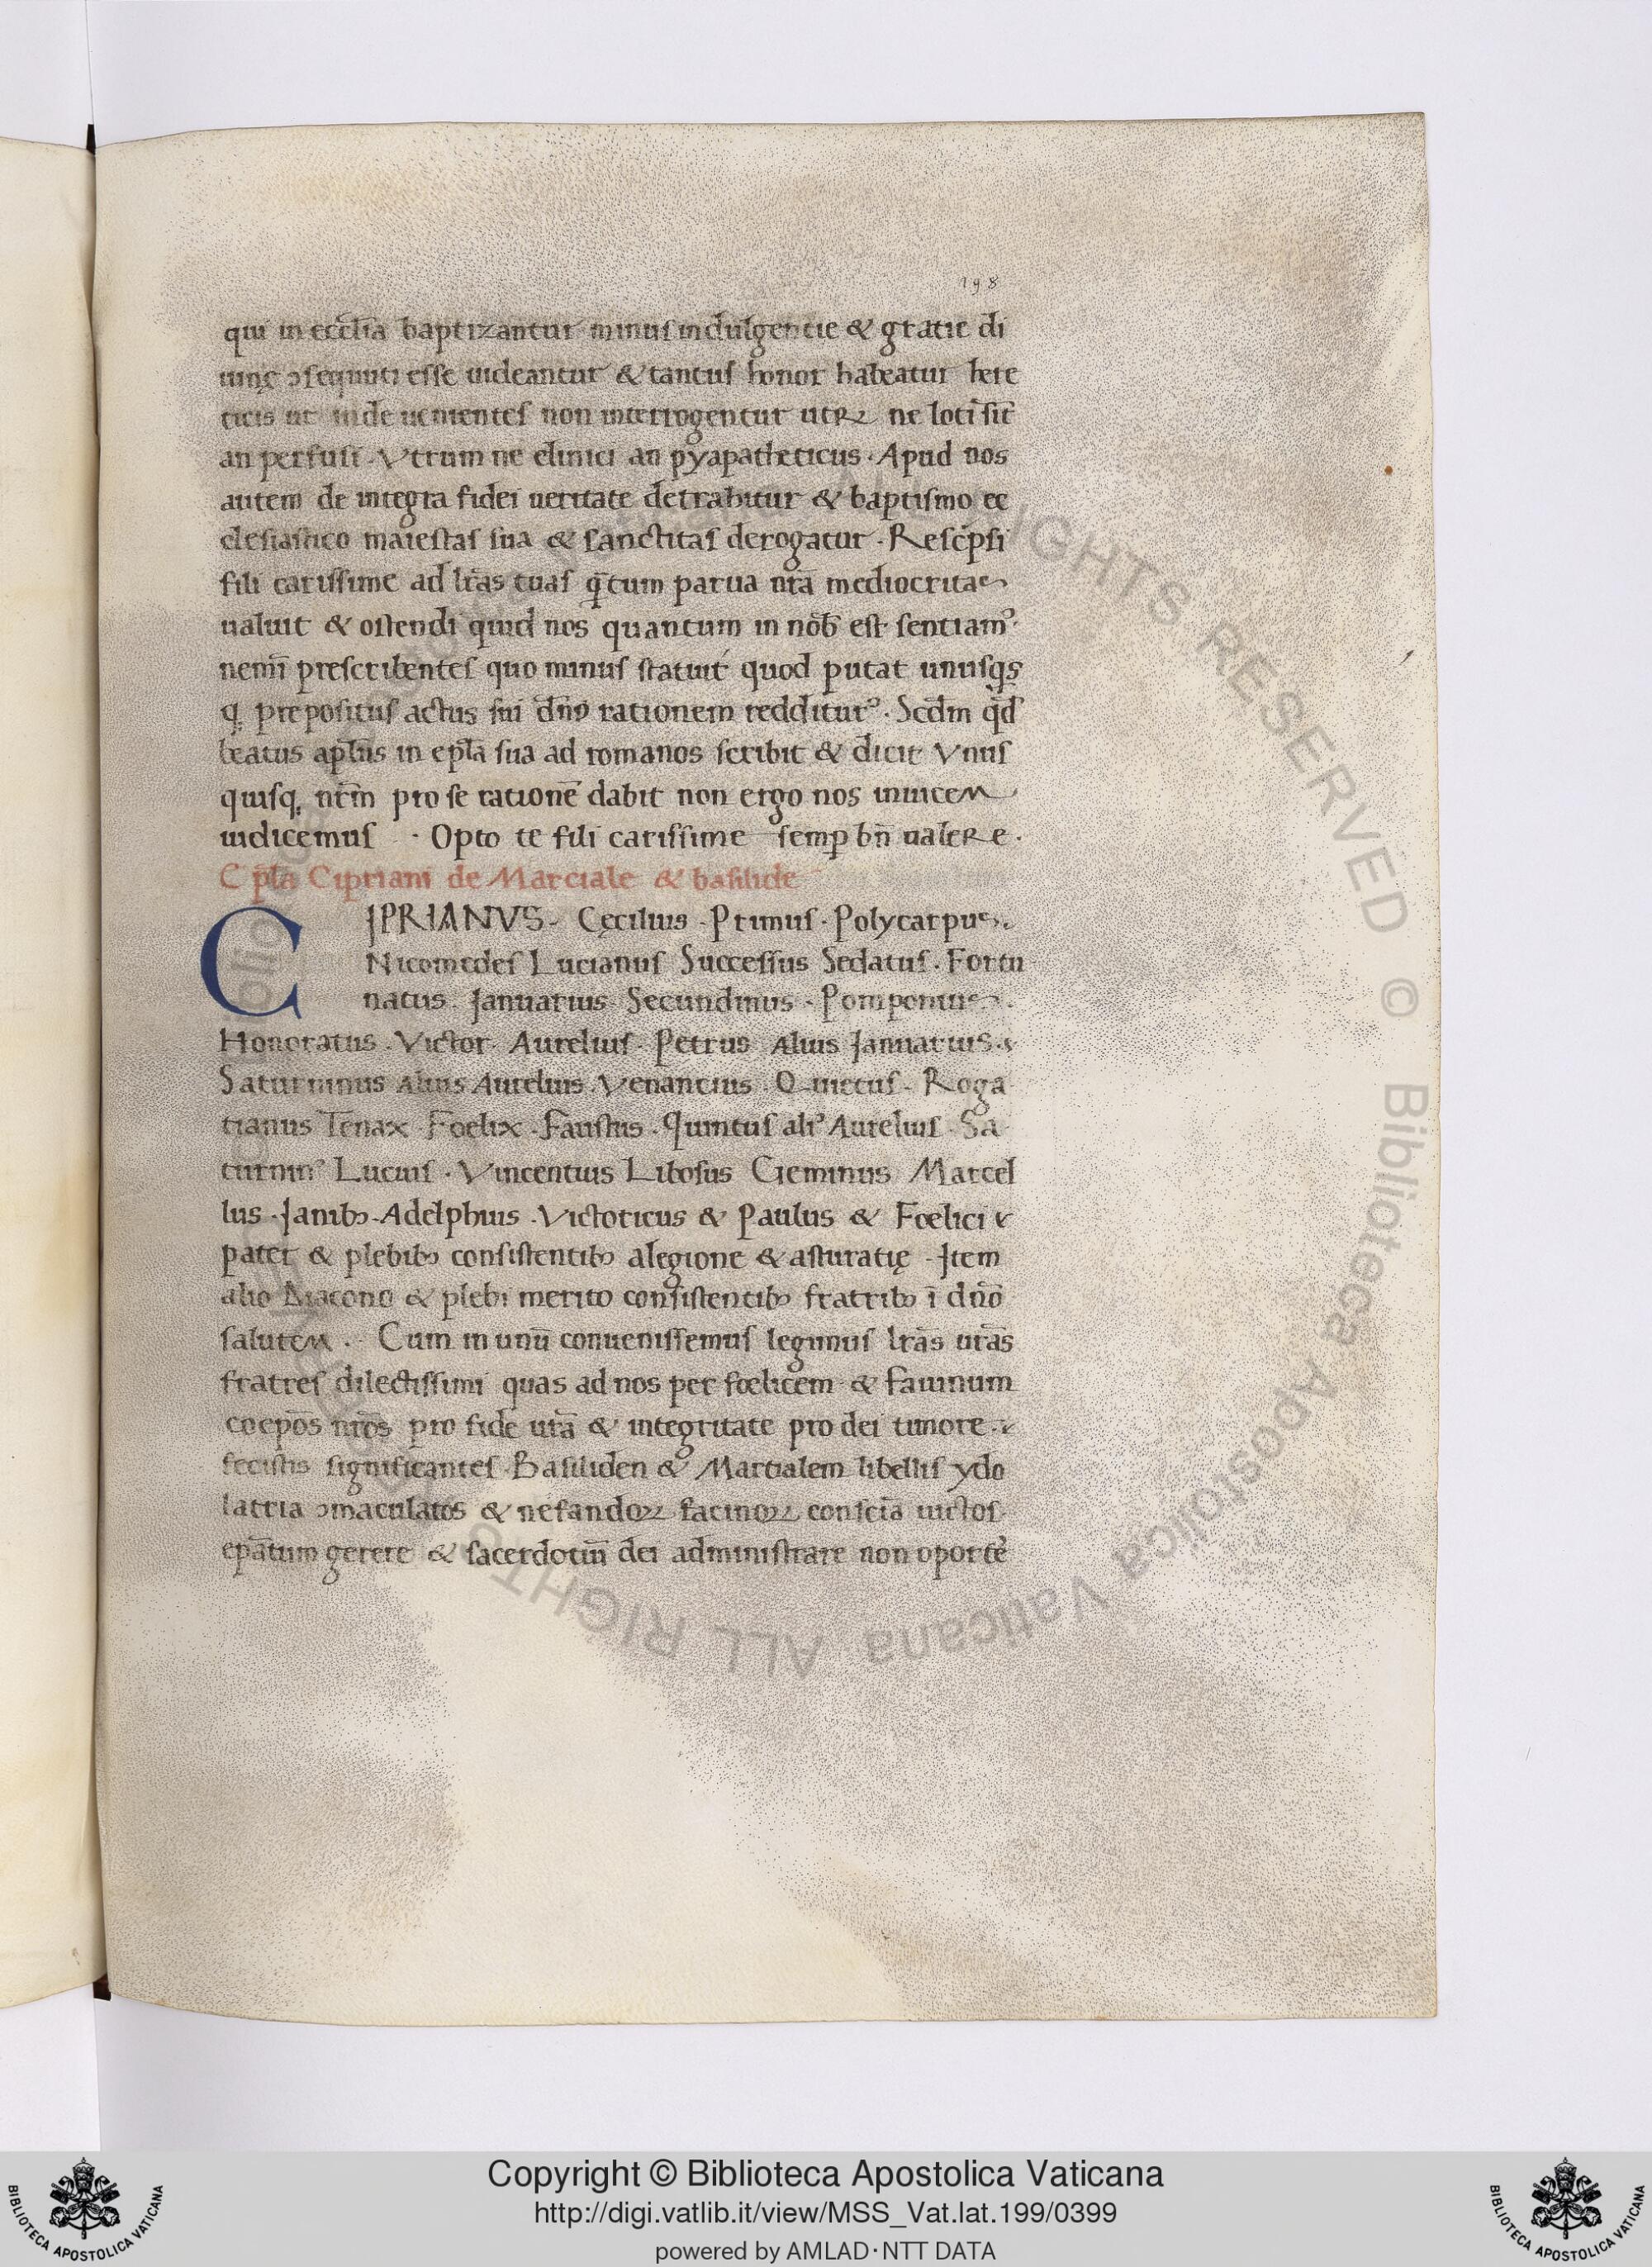 198
qui in eccl̄ia baptizantur minus indulgentie & gratie di
uinę ↄsequuti esse uideantur & tantus honor habeatur here
ticis ut inde uenientes non interrogentur utꝝ ne loti sīt
an perfusi . Vtrum ne clinici an pyapatheticus . Apud nos
autem de integra fidei ueritate detrahitur & baptismo ec
clesiastico maiestas sua & sanctitas derogatur . Resc̄psi
fili carissime ad lr̄as tuas q̄tum parua nr̄a mediocritas
ualuit & ostendi quid nos quantum in nob̄ est sentiamꝰ
nemī prescribentes quo minus statuit quod putat unusqs
q; prepositus actus sui dn̄o rationem redditurꝰ . Scd̄m qd̄
beatus apl̄us in ep̄la sua ad romanos scribit & dicit Vnus
quisq; nr̄m pro se rationē dabit non ergo nos inuicem
iudicemus . Opto te fili carissime semꝑ bn̄ ualere .
Ep̄la Cipriani de Marciale & basilide
CIPRIANVS . Cęcilius . Primus . Polycarpus .
Nicomedes Lucianus Successus Sedatus . Fortu
natus . Januarius Secundinus . Pomponius .
Honoratus . Victor . Aurelius . Petrus Alius Januarius .
Saturninus Alius Aurelius . Venantius . Quietus . Roga
tianus Tenax . Foelix . Faustus . Quintus aliꝰ Aurelius . Sa
turninꝰ Lucius . Vincentius Libosus Geminus Marcel
lus . Janibꝫ . Adelphius . Victoricus & Paulus & Foelici
pater & plebibꝫ consistentibꝫ alegione & asturatię . Item
alio Diacono & plebi merito consistentibꝫ fratribꝫ ī dn̄o
salutem . Cum in unū conuenissemus legimus lr̄as ur̄as
fratres dilectissimi quas ad nos per foelicem & Fauinum
coepōs nr̄os pro fide ur̄a & integritate pro dei timore .
fecistis significantes Basiliden & Martialem libellis ydo
latria ↄmaculatos & nefandoꝝ facinoꝝ consciā uictos
ep̄atum gerere & sacerdotiū dei administrare non oporte
Copyright © Biblioteca Apostolica Vaticana
http://digi.vatlib.it/view/MSS_Vat.lat.199/0399
powered by AMLAD·NTT DATA
BIBLIOTECA APOSTOLICA VATICANA
BIBLIOTECA APOSTOLICA VATICANA
© Biblioteca Apostolica Vaticana ALL RIGHTS RESERVED